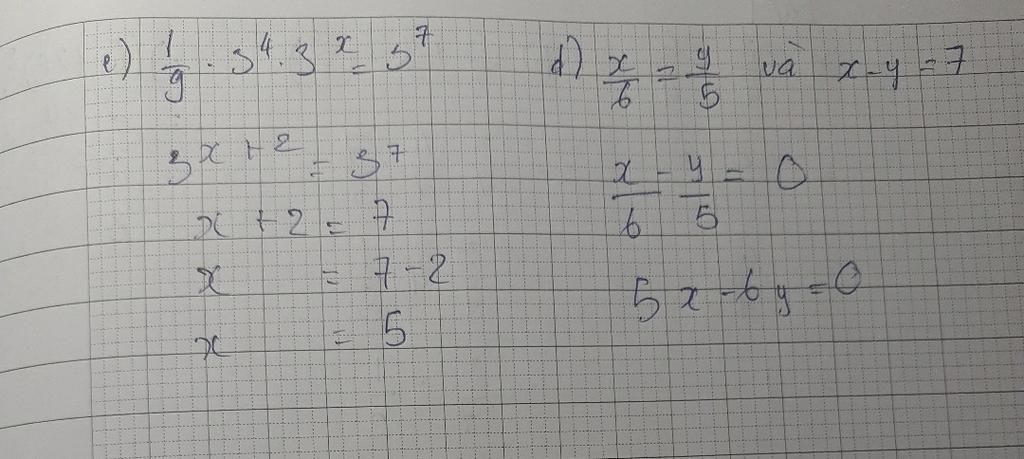 c) 1/9 . 3^4 . 3^x = 3^7
3^(x+2) = 3^7
x + 2 = 7
x = 7 - 2
x = 5
d) x/6 = y/5 và x - y = 7
x/6 - y/5 = 0
5x - 6y = 0